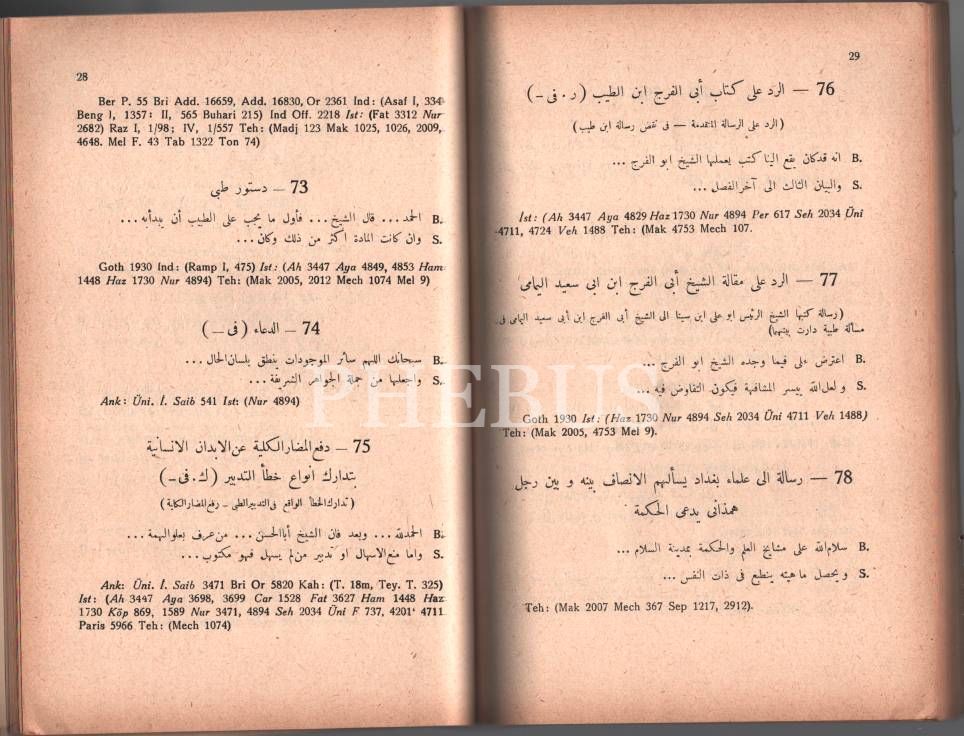 28
Ber P. 55 Bri Add. 16659, Add. 16830, Or 2361 Ind : (Asaf I, 334
Beng I, 1357 : II, 565 Buhari 215) Ind Off. 2218 Ist : (Fat 3312 Nur
2682) Raz I, 1/98; IV, 1/557 Teh : (Madj 123 Mak 1025, 1026, 2009,
4648. Mel F. 43 Tab 1322 Ton 74)
73 — دستور طبى
B. الحمد ... قال الشيخ ... فأول ما يجب على الطبيب أن يبدأبه ...
S. وان كانت المادة اكثر من ذلك وكان ...
Goth 1930 Ind : (Ramp I, 475) Ist : (Ah 3447 Aya 4849, 4853 Ham
1448 Haz 1730 Nur 4894) Teh : (Mak 2005, 2012 Mech 1074 Mel 9)
74 — الدعاء (فى —)
B. سبحانك اللهم سائر الموجودات ينطق بلسان الحال ...
S. واجعلها من جملة الجواهر الشريفة ...
Ank : Üni. İ. Saib 541 Ist : (Nur 4894)
75 — دفع المضار الكلية عن الابدان الانسانية
بتدارك انواع خطأ التدبير (ك . فى —)
(تدارك الخطأ الواقع فى التدبير الطبى — رفع المضار الكلية)
B. الحمدلله ... وبعد فان الشيخ أبا الحسن ... من عرف بعلو الهمة ...
S. واما منع الاسهال او تدبير من لم يسهل فهو مكتوب ...
Ank : Üni. İ. Saib 3471 Bri Or 5820 Kah : (T. 18m, Tey. T. 325)
Ist : (Ah 3447 Aya 3698, 3699 Car 1528 Fat 3627 Ham 1448 Haz
1730 Köp 869, 1589 Nur 3471, 4894 Seh 2034 Üni F 737, 4201' 4711
Paris 5966 Teh : (Mech 1074)
29
76 — الرد على كتاب أبى الفرج ابن الطيب (ر . فى —)
(الرد على الرسالة المتقدمة — فى نقض رسالة ابن طيب)
B. انه قدكان يقع الينا كتب يعملها الشيخ ابو الفرج ...
S. والبيان الثالث الى آخر الفصل ...
Ist : (Ah 3447 Aya 4829 Haz 1730 Nur 4894 Per 617 Seh 2034 Üni
4711, 4724 Veh 1488 Teh : (Mak 4753 Mech 107.
77 — الرد على مقالة الشيخ أبى الفرج ابن ابى سعيد اليمامى
(رسالة كتبها الشيخ الرئيس ابو على ابن سينا الى الشيخ أبى الفرج ابن أبى سعيد اليمامى فى
مسألة طبية دارت بينهما)
B. اعترض على فيما وجده الشيخ ابو الفرج ...
S. ولعل الله ييسر المشافهة فيكون التفاوض فيه ...
Goth 1930 Ist : (Haz 1730 Nur 4894 Seh 2034 Üni 4711 Veh 1488)
Teh : (Mak 2005, 4753 Mel 9).
78 — رسالة الى علماء بغداد يسألهم الانصاف بينه و بين رجل
همذانى يدعى الحكمة
B. سلام الله على مشايخ العلم والحكمة بمدينة السلام ...
S. و يحصل ماهيته ينطبع فى ذات النفس ...
Teh : (Mak 2007 Mech 367 Sep 1217, 2912).
PHEBUS